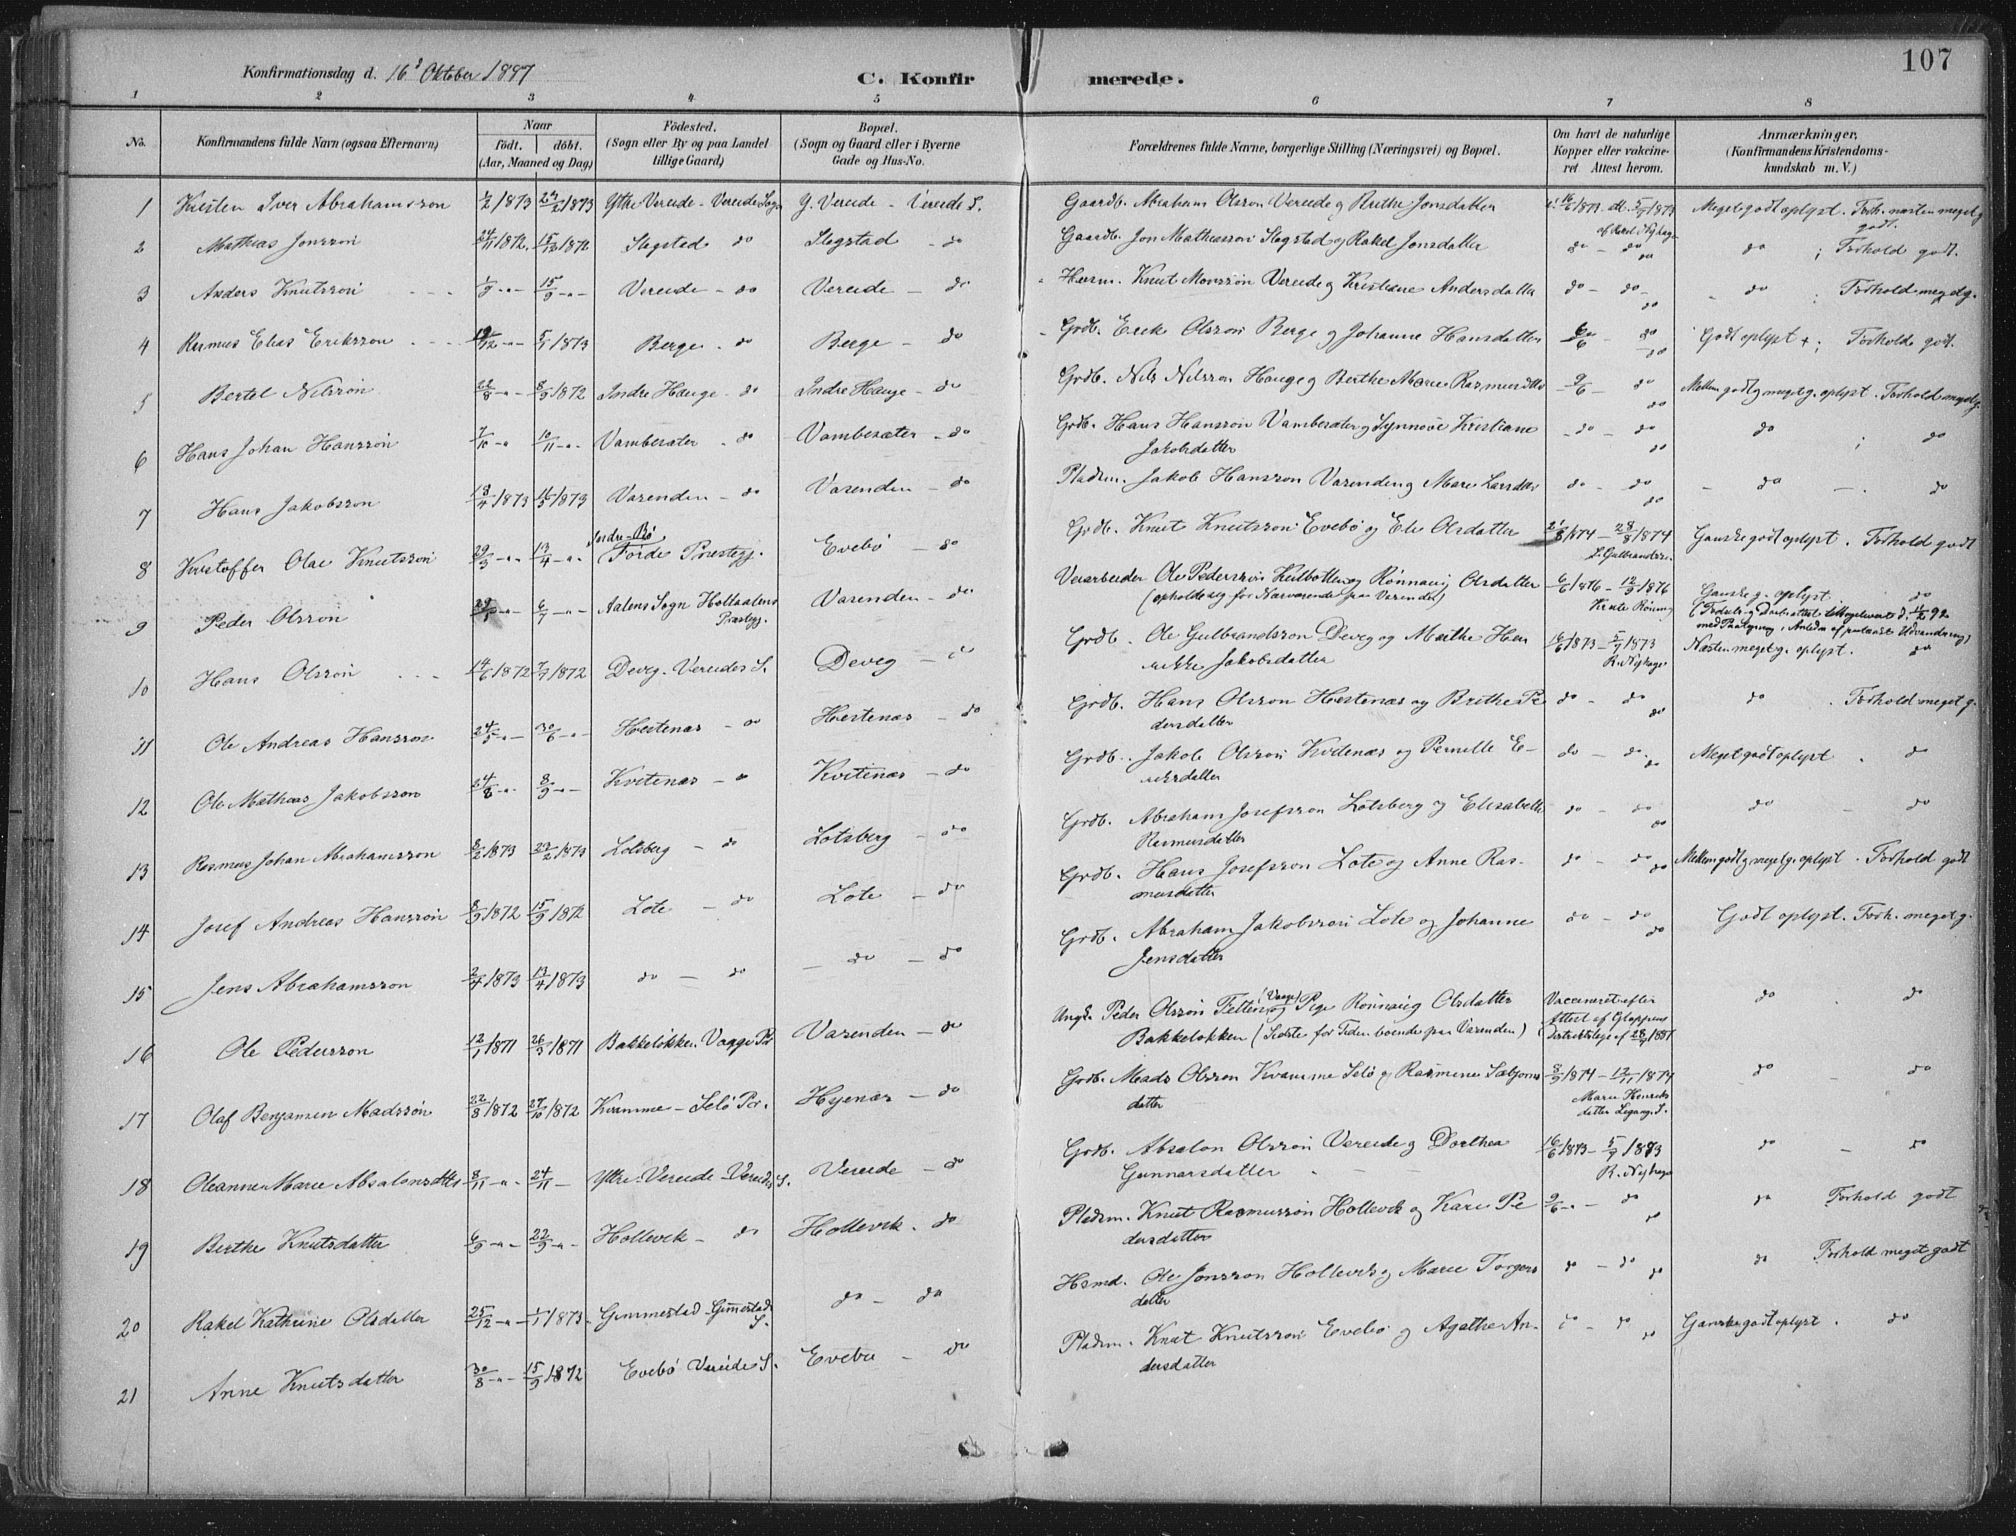 107
Konfirmationsdag d. 16' Oktober 1887
C. Konfirmerede.
1 2 3 4 5 6 7 8
No. Konfirmandens fulde Navn (ogsaa Efternavn) Naar födt. döbt. (Aar, Maaned og Dag) Födested. (Sogn eller By og paa Landet tillige Gaard) Bopæl. (Sogn og Gaard eller i Byerne Gade og Hus-No. Forældrenes fulde Navne, borgerlige Stilling (Næringsvei) og Bopæl. Om havt de naturlige Kopper eller vaccineret Attest herom. Anmærkninger, (Konfirmandens Kristendomskundskab m. V.)
1 Kristen Iver Abrahamsson 1/2 1873 24/2 1873 Ytre Vereide - Vereide Sogn Y. Vereide - Vereide S. Gaardb. Abraham Olsson Vereide og Brithe Jonsdatter 16/6 1873 att. 5/7 1873 af Rasd. Nyhage Meget godt oplyst. Forh. næsten meget godt.
2 Mathias Jonsson 24/11 1872. 15/12 1872 Slogstad do Slogstad - do Gaardb. Jon Mathiasson Slogstad og Rakel Jonsdatter do - do do do ; Forhold godt.
3 Anders Knutsson 1/9 -"- 15/9 -"- Vereide - do Vereide - do Husm. Knut Monsson Vereide og Kristiane Andersdatter do - do - do do ; Forhold meget g.
4 Rasmus Elias Eriksson 19/12 -"- 5/1 1873 Berge - do Berge - do Grdb. Erik Olsson Berge og Johanne Hansdatter 6/6 - do do Godt oplyst + ; Forholde godt.
5 Bertel Nilsson 22/8 -"- 8/9 1872 Indre Hauge - do Indre Hauge - do Grdb. Nils Nilsson Hauge og Berthe Marie Rasmusdatter 9/6 - do do Mellem godt og meget g. oplyst. Forhold meget g.
6 Hans Johan Hansson 7/10 -"- 10/11 -"- Vambesæter - do Vambesæter - do Grdb. Hans Hansson Vambesæter og Synnøve Kristiane Jakobsdatter - do - do do do ; do
7 Hans Jakobsson 18/4 1873 11/5 1873 Varenden - do Varenden - do Pladsm. Jakob Hansson Varenden og Mari Larsdatter do - do do - do - . do
8 Kristoffer Olai Knutsson 29/3 -"- 13/4 -"- Indre-Bø Førde Præstegj. Evebø - do Grdb. Knut Knutsson Evebø og Eli Olsdatter 21/8 1874 - 28/8 1874 Gulbrandsen Ganske godt oplyst . Forhold godt
9 Peder Olsson -"- 6/7 -"- Aalens Sogn Holtaalens Præstegj. Varenden - do Veiarbeider Ole Pedersson Kulbotten og Rønnaug Olsdatter (opholde sig for Nærværende paa Varenden) 6/6 1876 - 12/9 1876 Ganske g. oplyst . do
10 Hans Olsson 14/6 1872 7/7 1872 Deveg - Vereides S. Deveg - do Grdb. Ole Gulbrandsson Deveg og Marthe Henrikke Jakobsdatter 16/6 1873 - 5/7 1873 R. Nyhage Næsten meget g. oplyst. do
11 Ole Andreas Hansson 24/5 -"- 30/6 -"- Hestenæs - do Hestenæs - do Grdb. Hans Olsson Hestenæs og Brithe Pedersdatter do - do do do . Forhold meget g.
12 Ole Mathias Jakobsson 24/8 -"- 8/9 -"- Kvitenæs - do Kvitenæs - do Grdb. Jakob Olsson Kvitenæs og Pernille Eriksdatter do - do. do Meget godt oplyst . do
13 Rasmus Johan Abrahamsson 8/2 1873 23/2 1873 Lotsberg - do Lotsberg - do Grdb. Abraham Josefsson Lotsberg og Elisabeth Rasmusdatter do - do do do - do
14 Josef Andreas Hansson 8/9 1872 15/9 1872 Lote - do Lote - do Grdb. Hans Josefsson Lote og Anne Rasmusdatter do - do do Mellem godt og meget g. oplyst . Forhold godt
15 Jens Abrahamsson 2/4 1873 13/4 1873 do - do - do - do Grdb. Abraham Jakobsson Lote og Johanne Jensdatter do - do do Godt oplyst. Forh. meget g.
16 Ole Pedersson 12/1 1871 26/3 1871 Bakkeløkken Vaage Pr Varenden - do Ungk. Peder Olsson Fetten (Vaage) og Pige Rønnaug Olsdatter Bakkeløkken (Sidste for Tiden boende paa Varenden) Vaccineret efter Attest af Gloppens Distriktslæge af 28/9 1887 do . do
17 Olaf Benjamin Madsson 22/8 1872 27/10 1872 Kvamme - Selø Pr. Hyenæs - do Grdb. Mads Olsson Kvamme Selø og Rasmine Salamonsdatter 8/9 1874 - 12/11 1874 Marie Henriksdatter Legang. S. do - do
18 Oleanne Marie Absalonsdatter 8/11 -"- 24/11 - Ytre-Vereide - Vereides S. Vereide - do Grdb. Absalon Olsson Vereide og Dorthea Gunnarsdatter 16/6 1873 - 5/7 1873 R. Nyhage do - do
19 Berthe Knutsdatter 6/9 -"- 22/9 -"- Hollevik - do Hollevik - do Pladsm. Knut Rasmusson Hollevik og Kari Pedersdatter 9/6 -"- do do do Forhold godt
20 Rakel Kathrine Olsdatter 25/12 -"- 1/1 1873 Gimmestad - Gimmestad S. do - do Hsmd. Ole Jonsson Hollevik og Marie Torgersdatter do - do do do Forhold meget godt
21 Anne Knutsdatter 30/8 -"- 15/9 1872 Evebø Vereide S. Evebø - do Pladsm. Knut Knutsson Evebø og Agathe Andersdatter do - do do Ganske godt oplyst . do